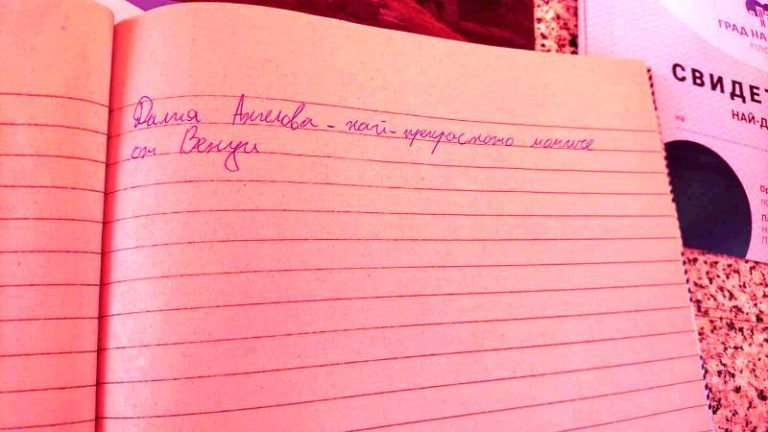 Далия Ангелова - най-прекрасното момиче
от Венци
ГРАД НА
ПЛО
СВИДЕТ
НАЙ-Д